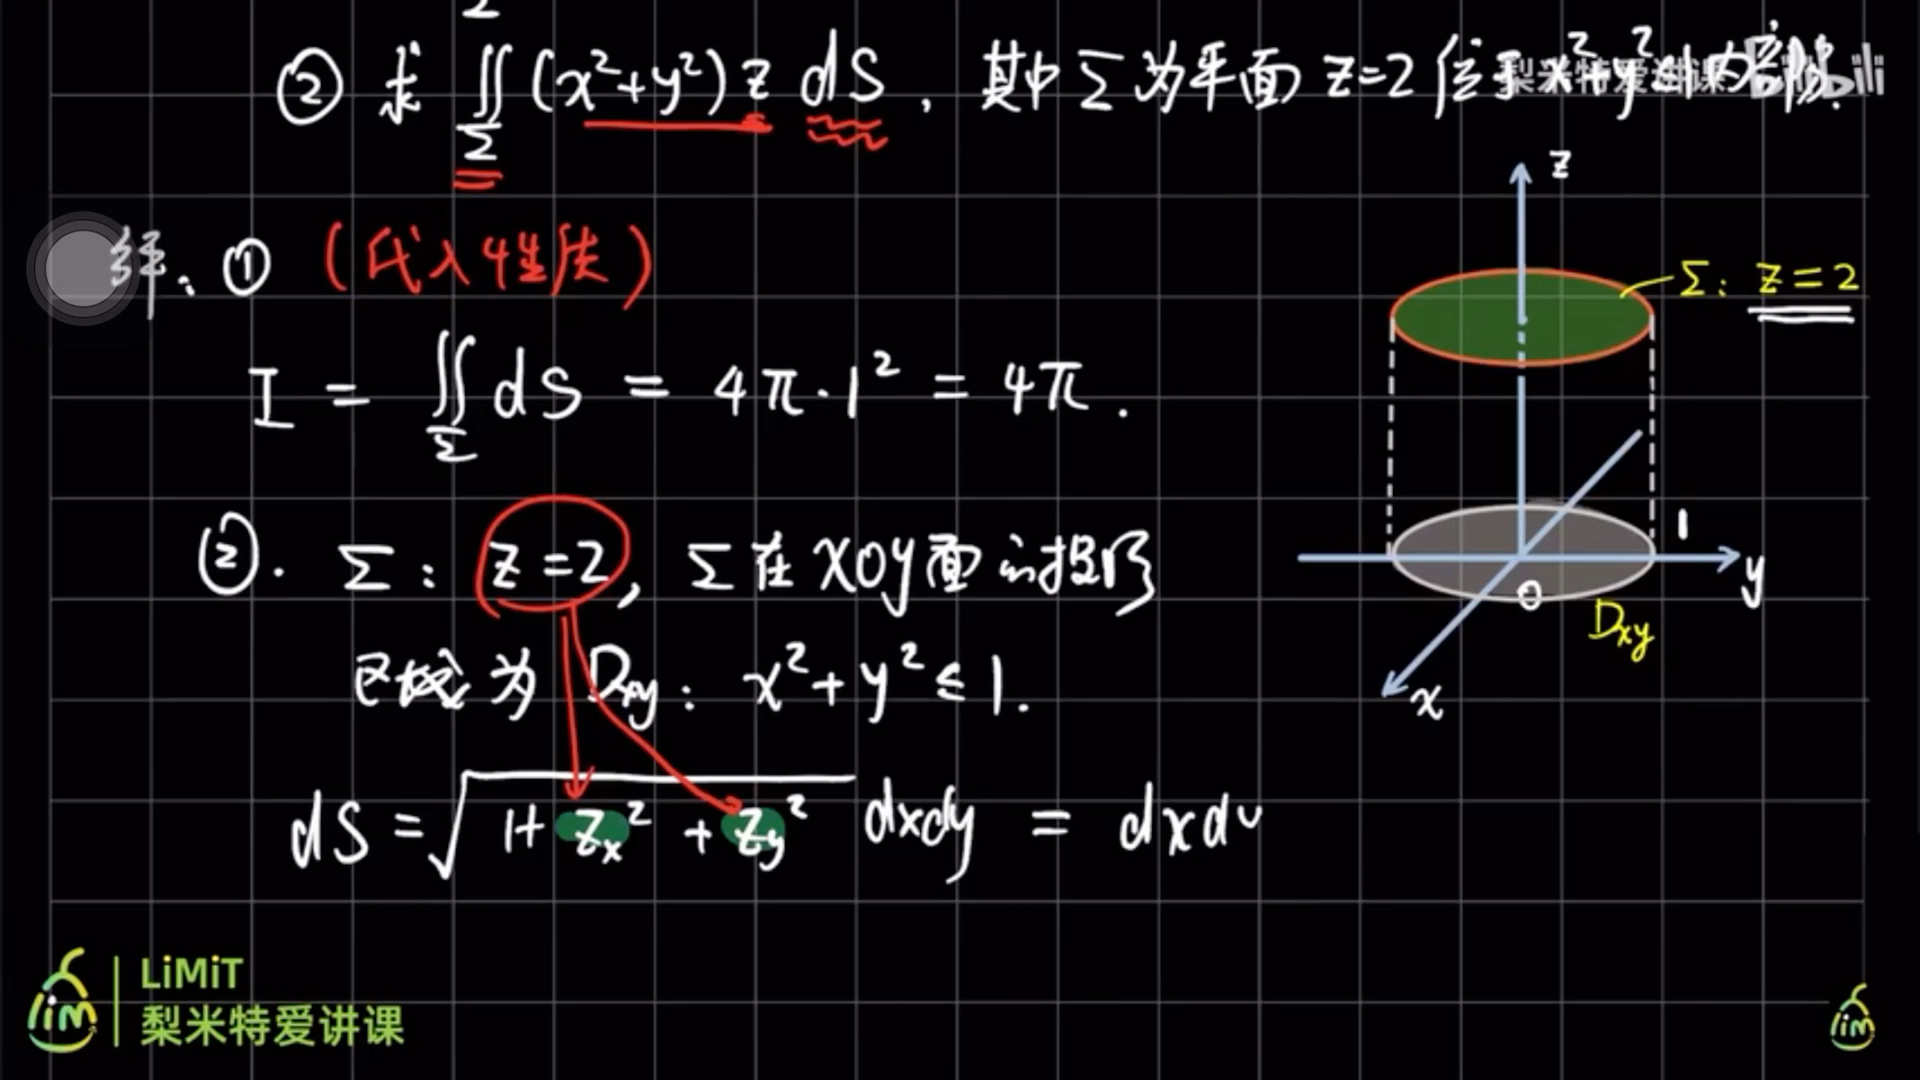 ② 求 ∬_Σ (x²+y²) z dS, 其中 Σ 为平面 z=2 位于 x²+y²≤1 内部.
梨米特爱讲课 bilibili
解: ① (代入性质)
I = ∬_Σ dS = 4π·1² = 4π.
②. Σ: z=2, Σ在xoy面的投影
区域为 Dxy: x²+y²≤1.
dS = √(1+zx²+zy²) dxdy = dxd
z
Σ: z=2
1
y
0
Dxy
x
LiMiT
梨米特爱讲课
LiM
LiM